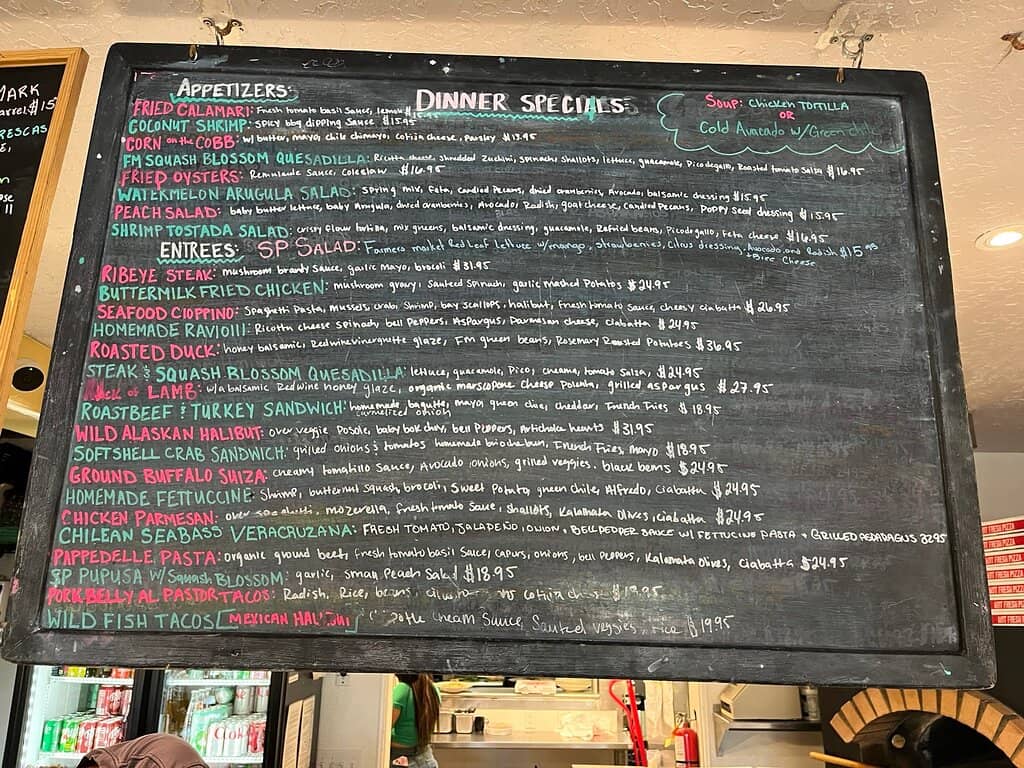 MARK
Barrel $15
FRESCAS
APPETIZERS:
DINNER SPECIALS:
SOUP: Chicken TORTILLA
OR
Cold Avocado w/Green chili
FRIED CALAMARI: Fresh tomato basil Sauce, lemon
COCONUT SHRIMP: spicy bbq dipping Sauce $15.95
CORN on the COBB: w/ butter, mayo, chile chimayo, cotija cheese, parsley $13.95
FM SQUASH BLOSSOM QUESADILLA: Ricotta cheese, shredded Zuchini, spinach, shallots, lettuce, guacamole, Pico de gallo, Roasted tomato Salsa $16.95
FRIED OYSTERS: Remulaude Sauce, coleslaw $16.95
WATERMELON ARUGULA SALAD: Spring mix, Feta, candied Pecans, dried cranberries, Avocado, balsamic dressing $15.95
PEACH SALAD: baby butter lettuce, baby Arugula, dried cranberries, Avocado, Radish, goat cheese, Candied Pecans, Poppy Seed dressing $15.95
SHRIMP TOSTADA SALAD: crispy flour tortilla, mix greens, balsamic dressing, guacamole, Refried beans, Pico de gallo, Feta cheese $16.95
ENTREES: SP SALAD: Farmers market Red Leaf Lettuce w/mango, strawberries, Citrus dressing, Avocado and Radish $15.95
+ Blue Cheese
RIBEYE STEAK: mushroom brandy Sauce, garlic Mayo, brocoli $31.95
BUTTERMILK FRIED CHICKEN: mushroom gravy, Sauteed Spinach, garlic mashed Potatos $24.95
SEAFOOD CIOPPINO: Spaghetti Pasta, mussels, crab, Shrimp, bay scallops, halibut, Fresh tomato Sauce, cheesy ciabatta $26.95
HOMEMADE RAVIOLI: Ricotta cheese Spinach, bell Peppers, Aspargus, Parmesan cheese, ciabatta $24.95
ROASTED DUCK: honey balsamic, Redwine vinergutte glaze, Fm green beans, Rosemary Roasted Potatoes $36.95
STEAK & SQUASH BLOSSOM QUESADILLA: lettuce, guacamole, Pico, creama, tomato Salsa, $24.95
Rack of LAMB: w/a balsamic Redwine honey glaze, organic marscopone cheese Polenta, grilled aspargus $27.95
ROASTBEEF & TURKEY SANDWICH: homemade bagutte, mayo, green chile, cheddar, French Fries $18.95
carmelized onion
WILD ALASKAN HALIBUT: over veggie Posole, baby bok choy, bell Peppers, Artichoke hearts $31.95
SOFTSHELL CRAB SANDWICH: grilled onions & tomatos homemade brioche bun, French Fries, mayo $18.95
GROUND BUFFALO SUIZA: creamy tomatillo Sauce, Avocado, onions, grilled veggies, black beans $24.95
HOMEMADE FETTUCCINE: Shrimp, butternut squash, brocoli, Sweet Potato, green chile, Alfredo, Ciabatta $24.95
CHICKEN PARMESAN: over spaghetti, mozerella, fresh tomato Sauce, shallots, Kalamata Olives, ciabatta $24.95
CHILEAN SEABASS VERACRUZANA: FRESH TOMATO, JALAPEÑO, ONION, BELL PEPPER SAUCE W/ FETTUCINE PASTA + GRILLED ASPARAGUS 32.95
PAPPEDELLE PASTA: organic ground beef, fresh tomato basil Sauce, capurs, onions, bell Peppers, Kalamata Olives, ciabatta $24.95
SP PUPUSA W/ Squash BLOSSOM: garlic, small Peach Salad $18.95
PORK BELLY AL PASTOR TACOS: Radish, Rice, beans, cilantro, cotija $19.95
WILD FISH TACOS [MEXICAN MAHI] Cream Sauce, Sauteed veggies, rice $19.95
HOT FRESH PIZZA
HOT FRESH PIZZA
Coke